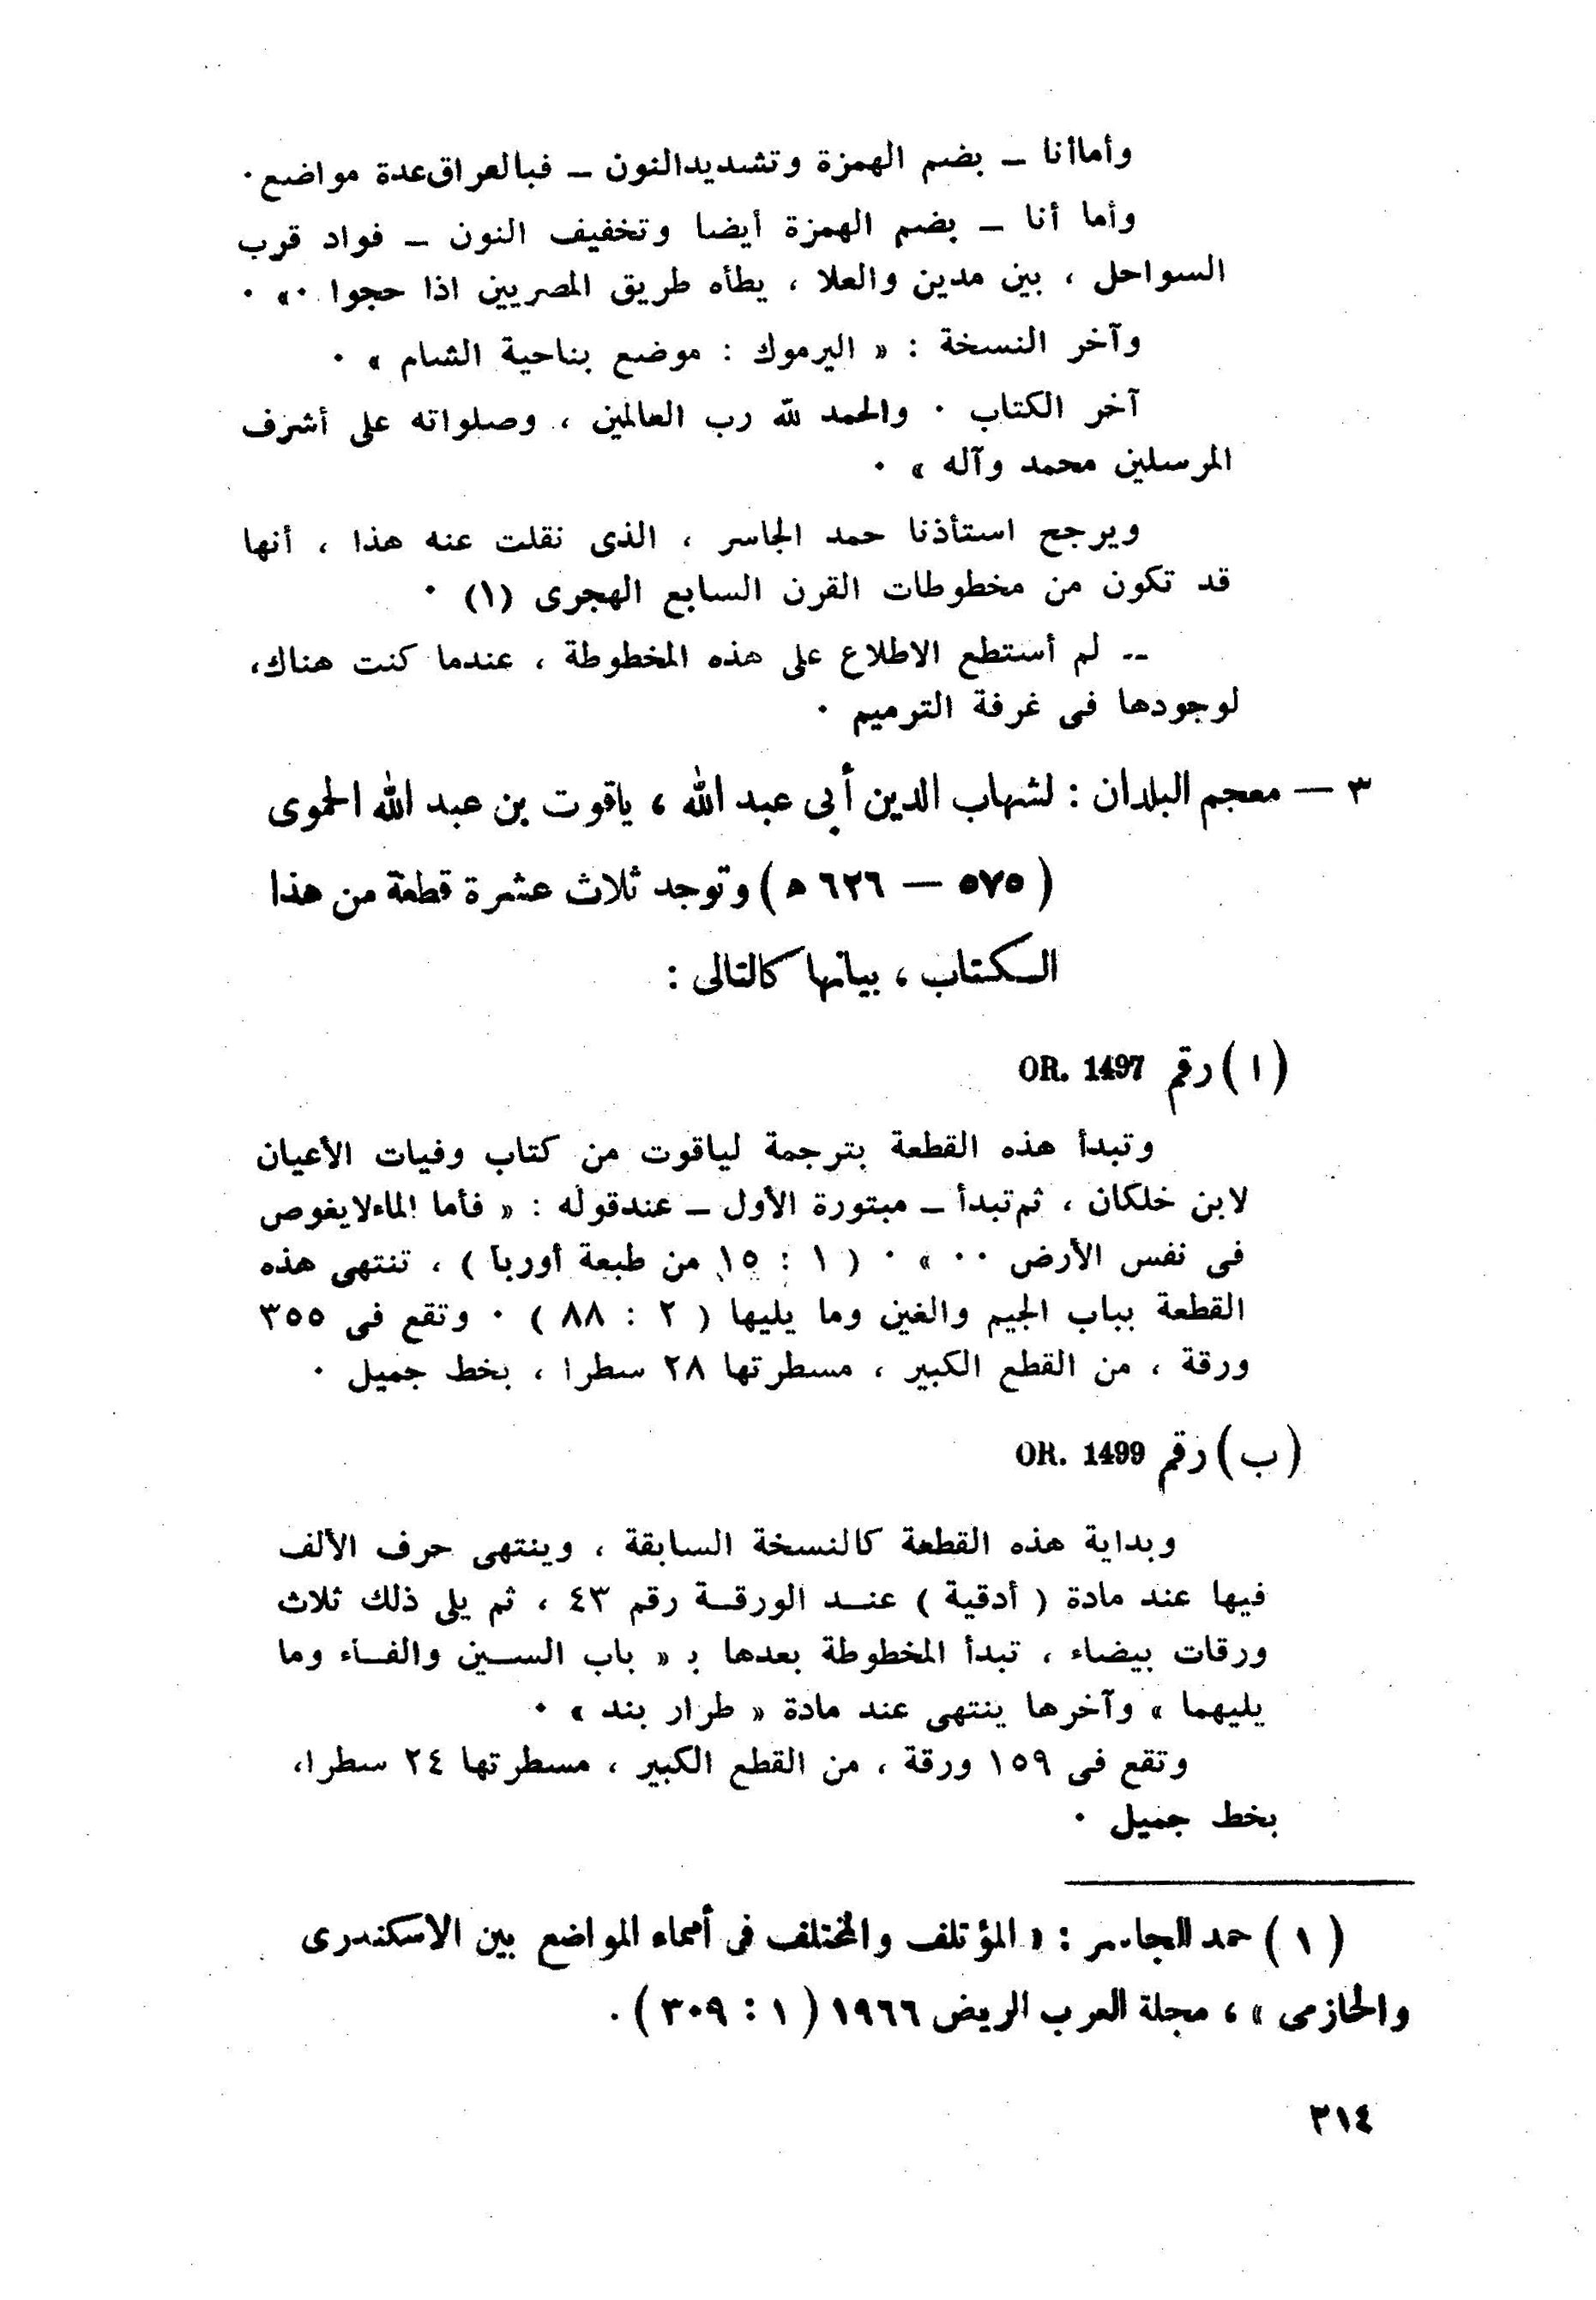 وأماأنا ــ بضم الهمزة وتشديدالنون ــ فبالعراق عدة مواضع .
وأما أنا ــ بضم الهمزة أيضا وتخفيف النون ــ فواد قرب
السواحل ، بين مدين والعلا ، يطأه طريق المصريين اذا حجوا .» .
وآخر النسخة : « اليرموك : موضع بناحية الشام » .
آخر الكتاب . والحمد لله رب العالمين ، وصلواته على أشرف
المرسلين محمد وآله » .
ويرجح استأذنا حمد الجاسر ، الذى نقلت عنه هذا ، أنها
قد تكون من مخطوطات القرن السابع الهجرى (١) .
ــ لم أستطع الاطلاع على هذه المخطوطة ، عندما كنت هناك،
لوجودها فى غرفة الترميم .
٣ — معجم البلدان : لشهاب الدين أبى عبد الله ، ياقوت بن عبد الله الحموى
( ٥٧٥ — ٦٢٦ ه ) وتوجد ثلاث عشرة قطعة من هذا
الكتاب ، بيانها كالتالى :
( ا ) رقم OR. 1497
وتبدأ هذه القطعة بترجمة لياقوت من كتاب وفيات الأعيان
لابن خلكان ، ثم تبدأ ــ مبتورة الأول ــ عندقوله : « فأما الماءلايغوص
فى نفس الأرض .. » . ( ١ : ١٥ من طبعة أوربا ) ، تنتهى هذه
القطعة بباب الجيم والغين وما يليها ( ٢ : ٨٨ ) . وتقع فى ٣٥٥
ورقة ، من القطع الكبير ، مسطرتها ٢٨ سطرا ، بخط جميل .
(ب) رقم OR. 1499
وبداية هذه القطعة كالنسخة السابقة ، وينتهى حرف الألف
فيها عند مادة ( أدقية ) عنــد الورقــة رقم ٤٣ ، ثم يلى ذلك ثلاث
ورقات بيضاء ، تبدأ المخطوطة بعدها بـ « باب الســين والفــاء وما
يليهما » وآخرها ينتهى عند مادة « طرار بند » .
وتقع فى ١٥٩ ورقة ، من القطع الكبير ، مسطرتها ٢٤ سطرا،
بخط جميل .
( ١ ) حمد الجاسر : « المؤتلف والمختلف فى أسماء المواضع بين الاسكندرى
والحازمى » ، مجلة العرب الريض ١٩٦٦ ( ١ : ٣٠٩ ) .
٣١٤